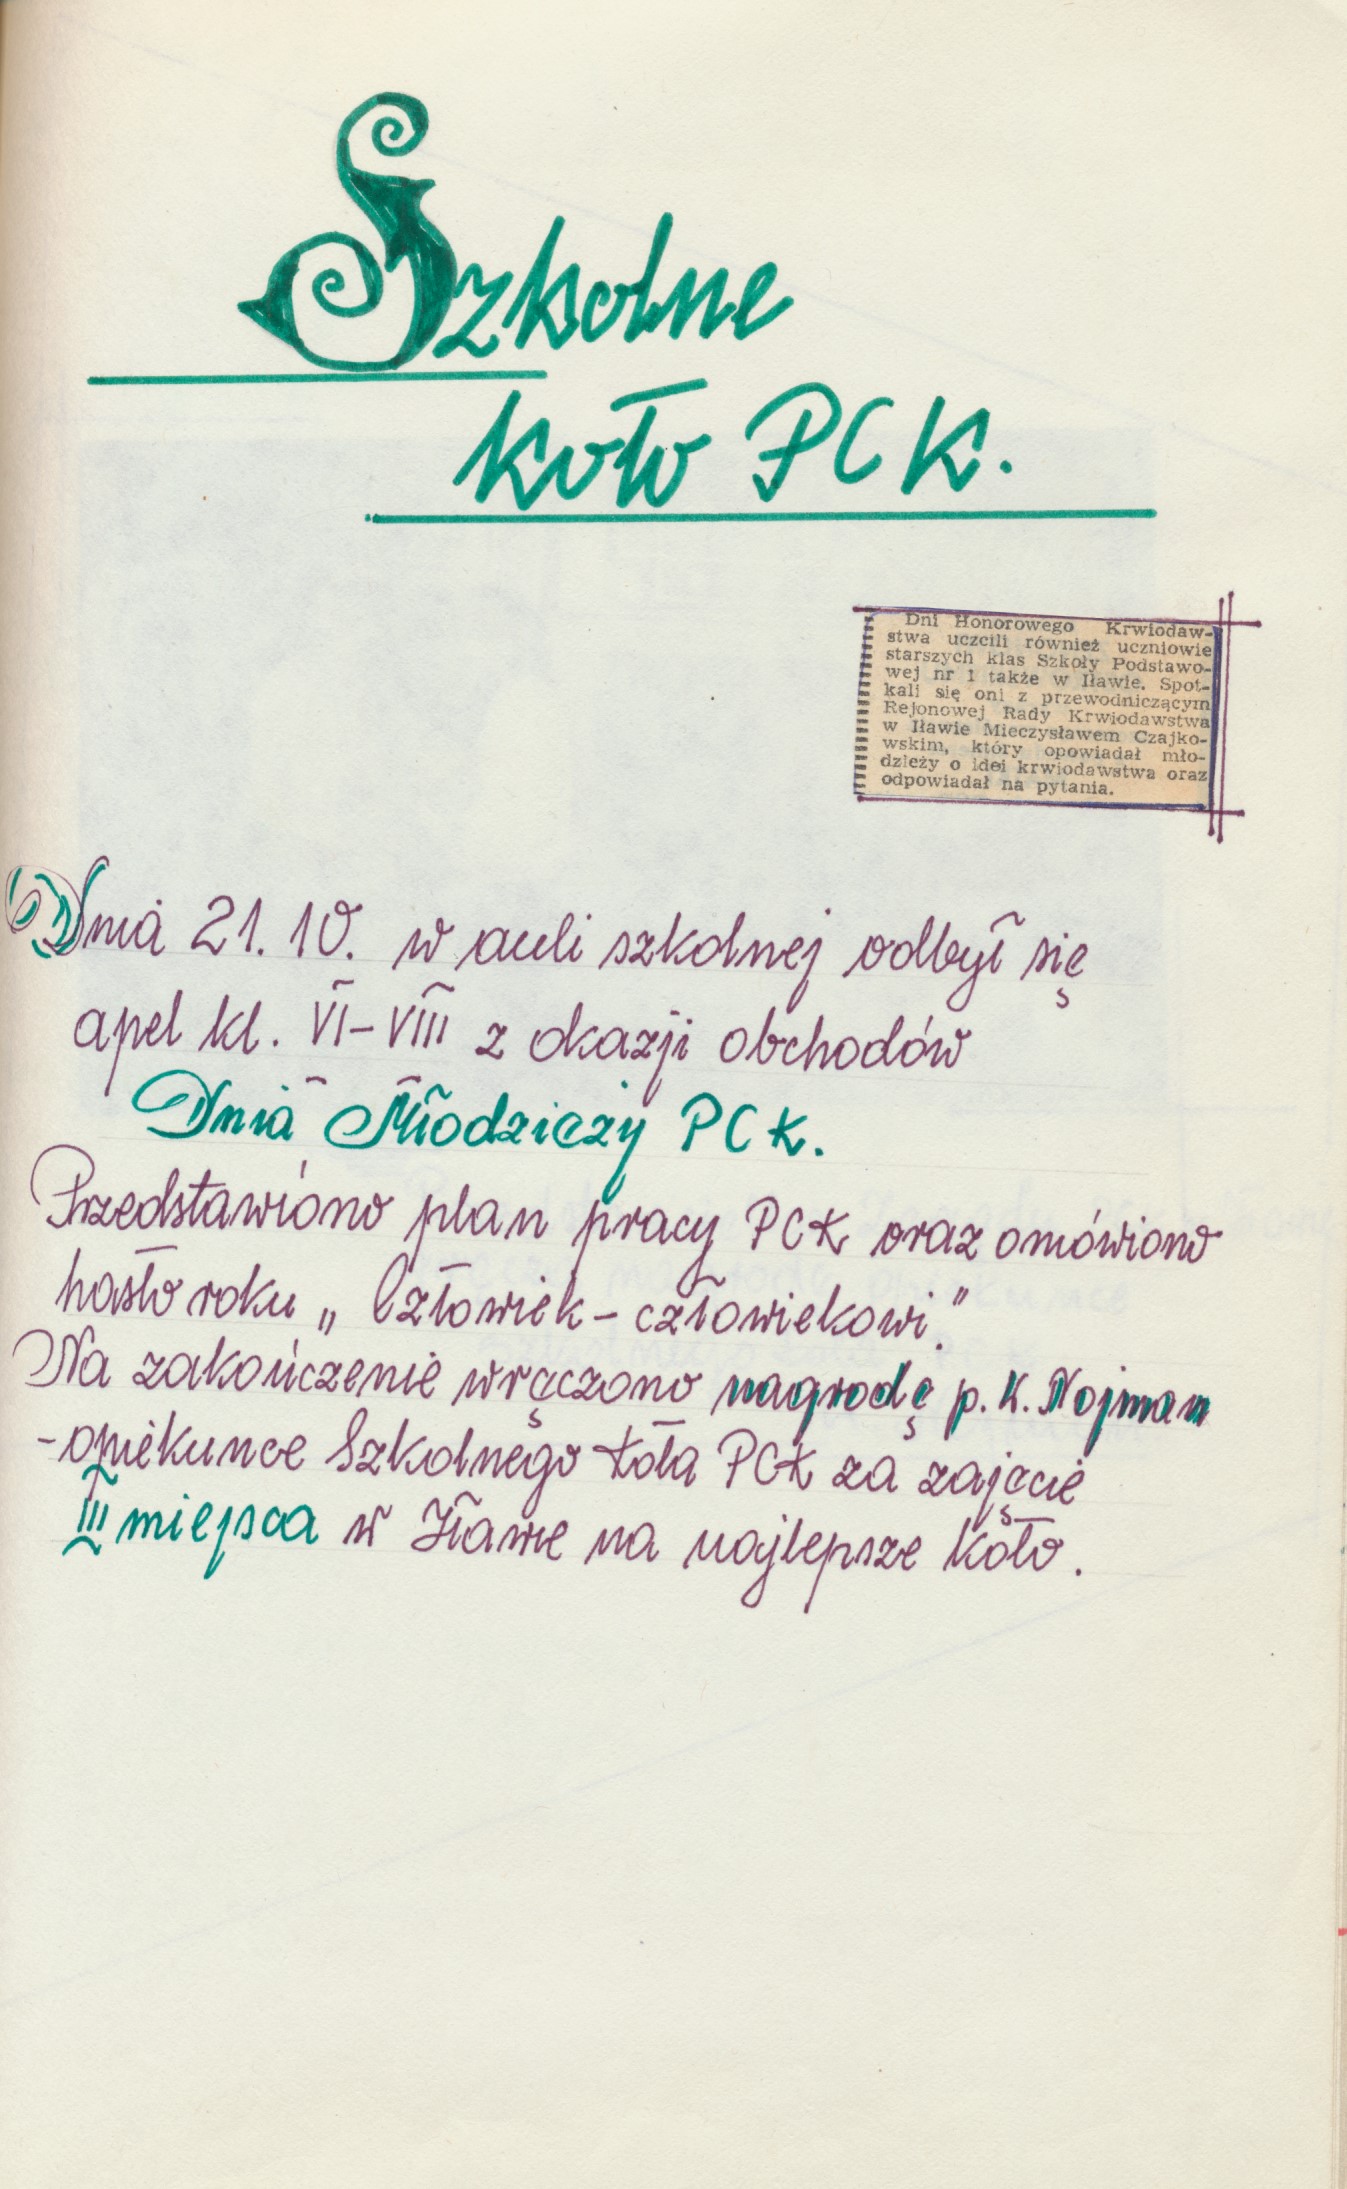 Szkolne
koło PCK.
Dni Honorowego Krwiodaw-
stwa uczcili również uczniowie
starszych klas Szkoły Podstawo-
wej nr 1 także w Iławie. Spot-
kali się oni z przewodniczącym
Rejonowej Rady Krwiodawstwa
w Iławie Mieczysławem Czajko-
wskim, który opowiadał mło-
dzieży o idei krwiodawstwa oraz
odpowiadał na pytania.
Dnia 21.10. w auli szkolnej odbył się
apel kl. VI-VIII z okazji obchodów
Dnia Młodzieży PCK.
Przedstawiono plan pracy PCK oraz omówiono
hasło roku „Człowiek - człowiekowi".
Na zakończenie wręczono nagrodę p. K. Nojman
-opiekunce Szkolnego Koła PCK za zajęcie
III miejsca w Iławie na najlepsze koło.